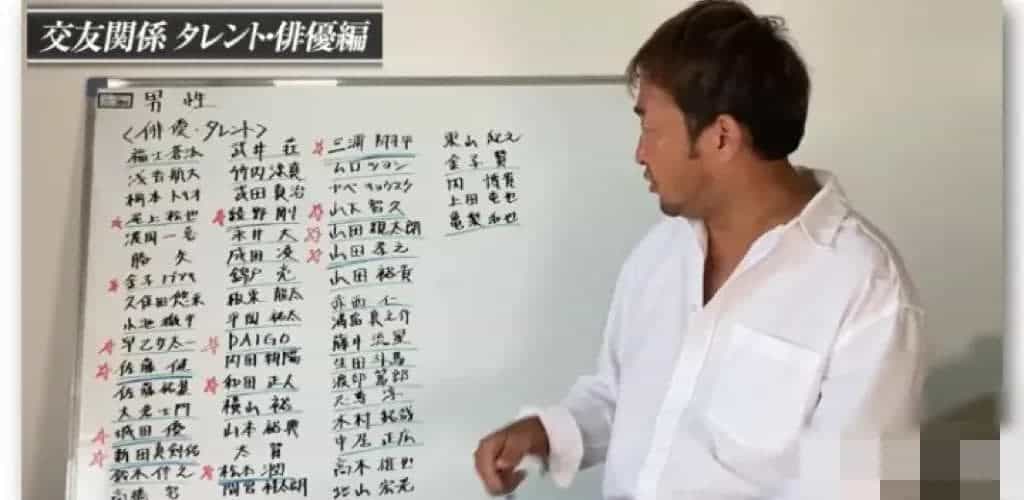 交友関係 タレント・俳優編
男性
<俳優・タレント>
福士蒼汰
浅香航大
柄本トキオ
尾上松也
濱田一孝
勝 久
金子ノブアキ
久保田悠来
小池徹平
早乙女太一
佐藤 健
佐藤祐基
大東士門
城田 優
新田真剣佑
鈴木伸之
武井 荘
竹内涼真
武田真治
綾野 剛
永井 大
成田 凌
錦戸 亮
板東龍太
平岡祐太
DAIGO
内田朝陽
和田正人
横山 裕
山本裕典
太賀
松本 潤
間宮祥太朗
三浦翔平
ムロツヨシ
ナベ
山下智久
山田親太朗
山田孝之
山田裕貴
赤西 仁
満島真之介
藤井流星
生田斗馬
渡部篤郎
木村拓哉
中居正広
高木雄也
北山宏光
東山紀之
金子 賢
内 博貴
上田竜也
亀梨和也